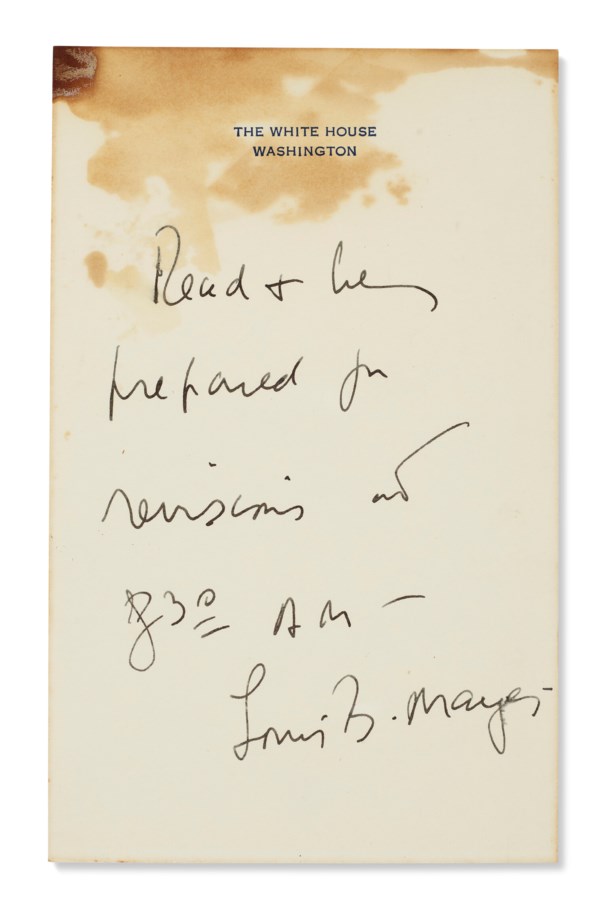 THE WHITE HOUSE
WASHINGTON
Read + be
prepared for
revisions at
8 30 AM –
Louis B. Mayer